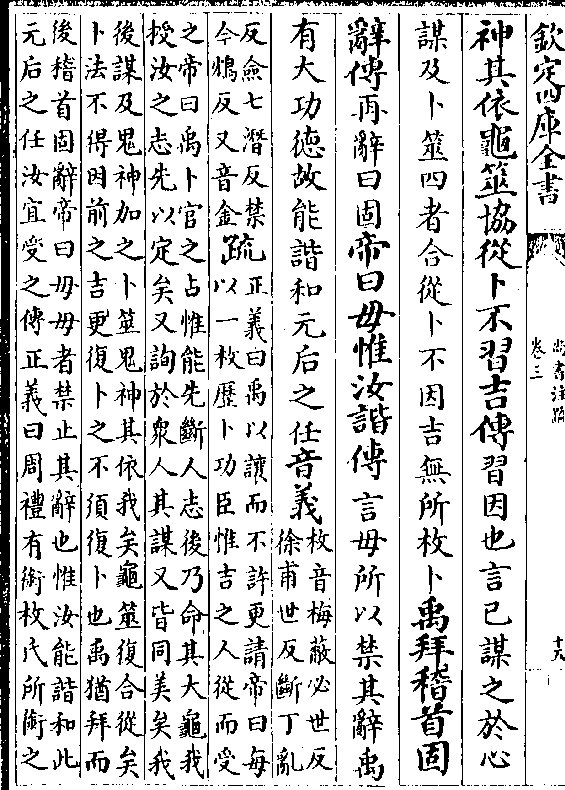 欽定四庫全書
尚書注疏
卷三
神其依龜筮協從卜不習吉傳習因也言已謀之於心
謀及卜筮四者合從卜不因吉無所枚卜禹拜稽首固
辭傳再辭曰固帝曰毋惟汝諧傳言毋所以禁其辭禹
有大功德故能諧和元后之任音義
枚音梅蔽必世反
徐甫世反斷丁亂
反僉七潛反禁
今鴆反又音金
疏
正義曰禹以讓而不許更請帝曰每
以一枚歷卜功臣惟吉之人從而受
之帝曰禹卜官之占惟能先斷人志後乃命其大龜我
授汝之志先以定矣又詢於衆人其謀又皆同美矣我
後謀及鬼神加之卜筮鬼神其依我矣龜筮復合從矣
卜法不得因前之吉更復卜之不須復卜也禹猶拜而
後稽首固辭帝曰毋毋者禁止其辭也惟汝能諧和此
元后之任汝宜受之傳正義曰周禮有銜枚氏所銜之